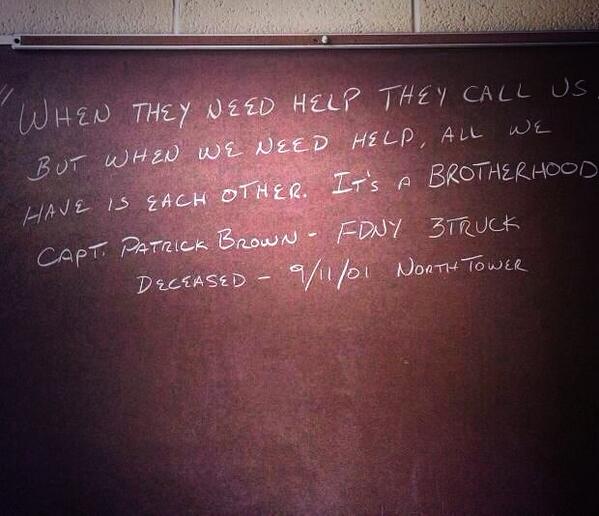 "WHEN THEY NEED HELP THEY CALL US.
BUT WHEN WE NEED HELP, ALL WE
HAVE IS EACH OTHER. IT'S A BROTHERHOOD
CAPT. PATRICK BROWN - FDNY 3TRUCK
DECEASED - 9/11/01 NORTH TOWER